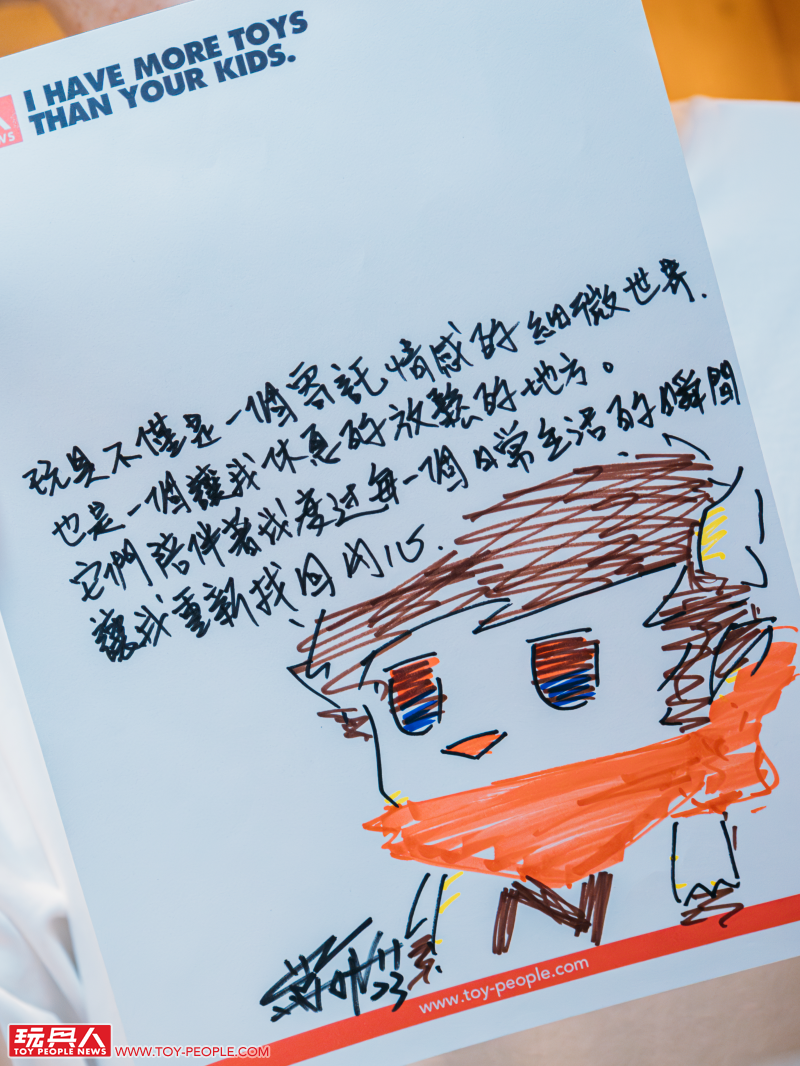 I HAVE MORE TOYS
THAN YOUR KIDS.
玩具不僅是一個寄託情感的細微世界.
也是一個讓我休息的放鬆的地方。
它們陪伴著我度過每一個日常生活的瞬間
讓我重新找回內心.
11
23
www.toy-people.com
玩具人
TOY PEOPLE NEWS
WWW.TOY-PEOPLE.COM